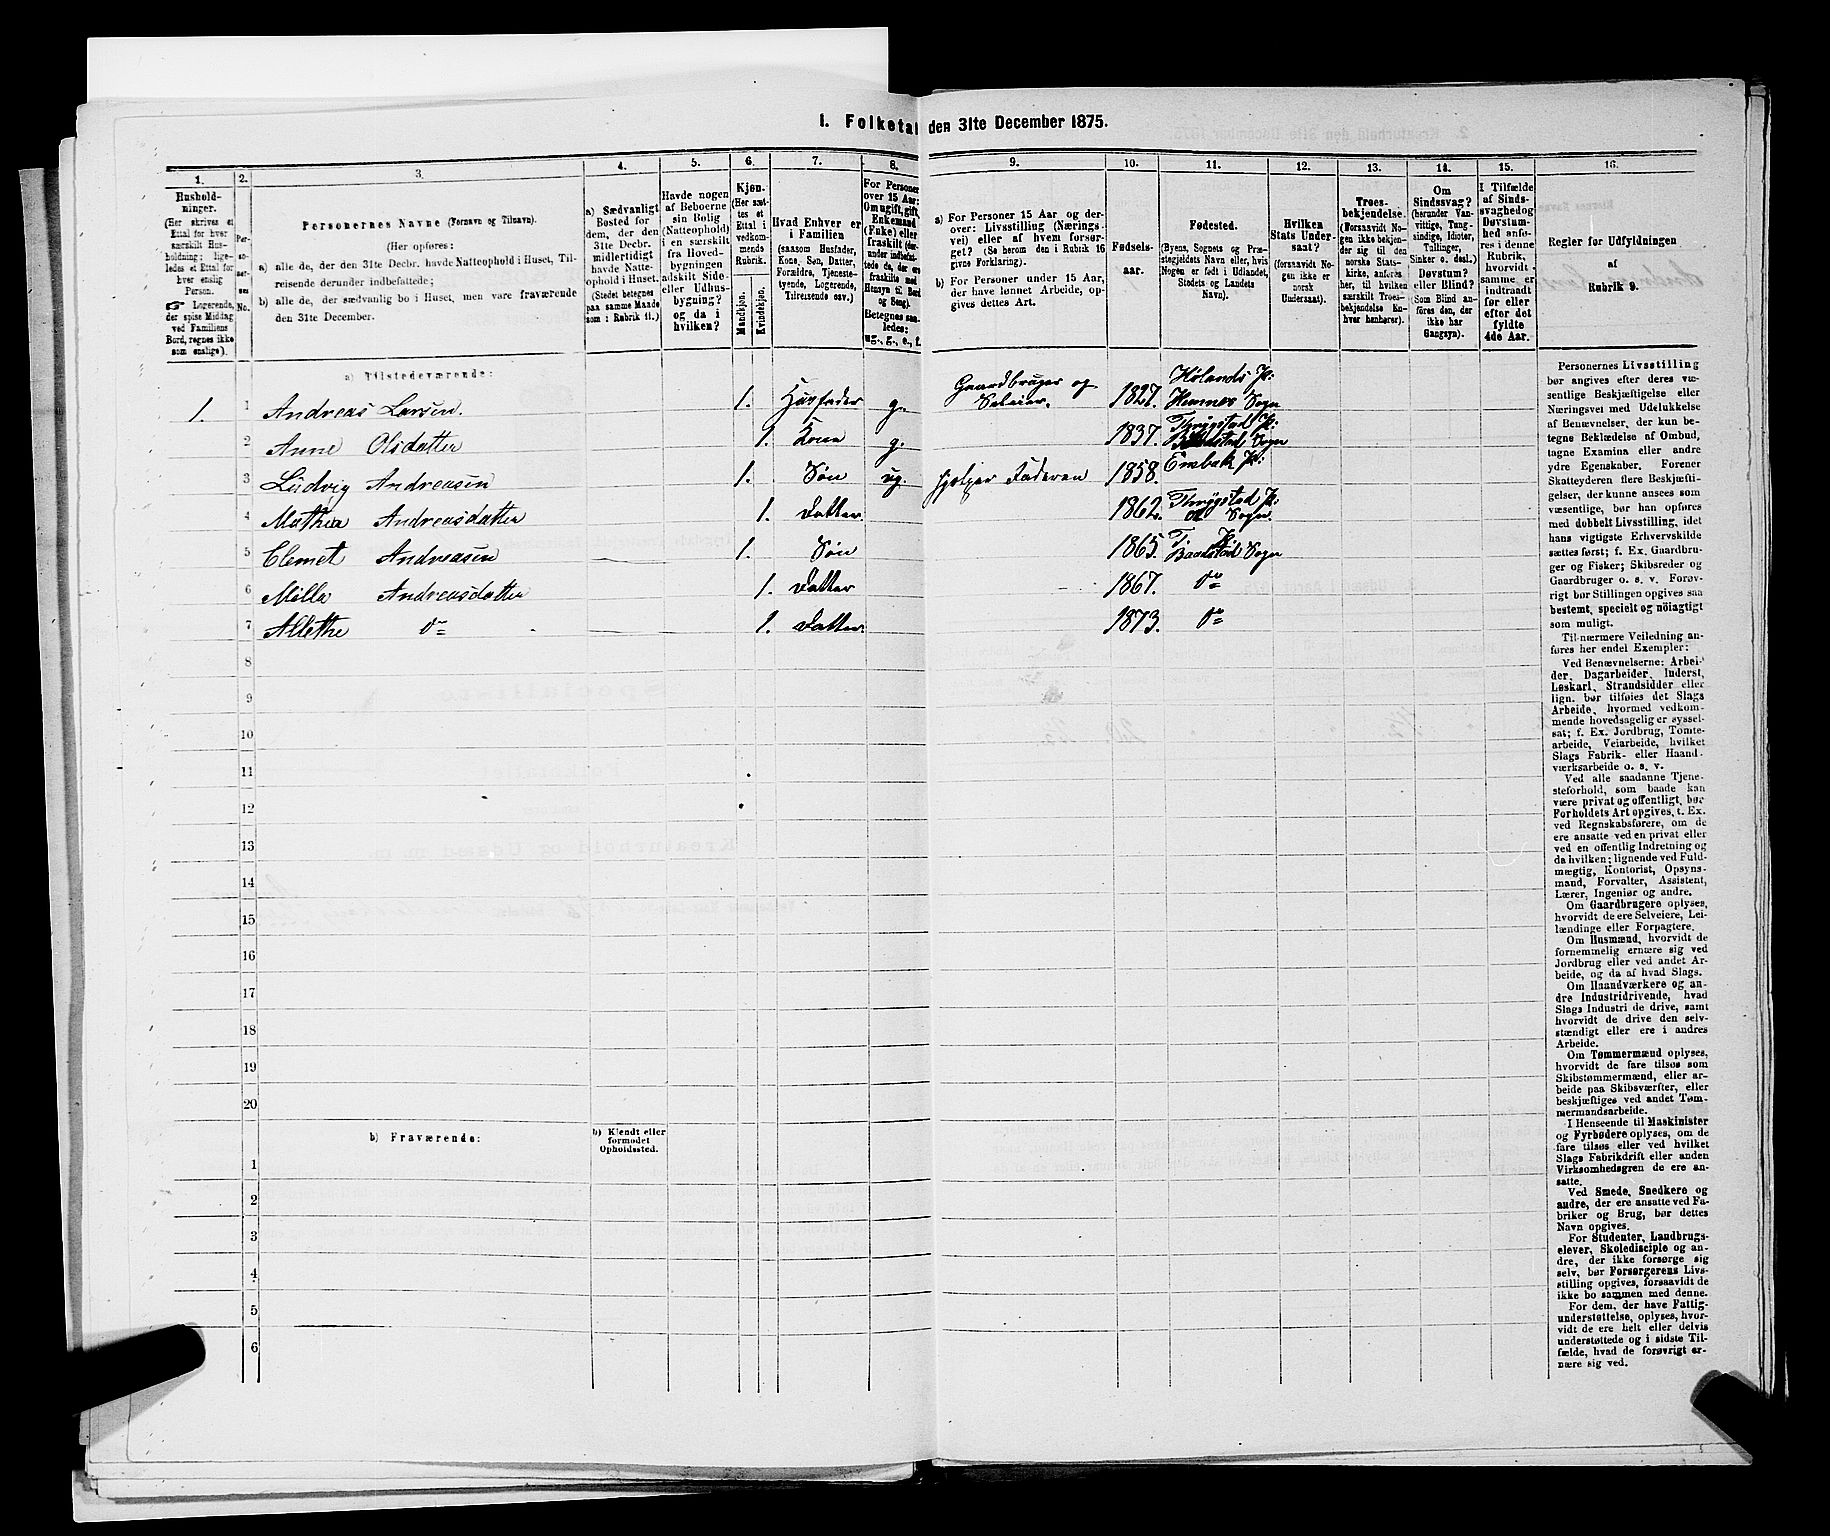 1. Folketal den 31te December 1875.
1.
Hushold-
ninger.
(Her skrives et
Ettal for hver
særskilt Hus-
holdning; lige-
ledes et Ettal for
hver enslig
Person.
☛ Logerende,
der spise Middag
ved Familiens
Bord, regnes ikke
som enslige).
2.
Per-
so-
ner-
nes
No.
3.
Personernes Navne (Fornavn og Tilnavn).
(Her opføres:
a) alle de, der den 31te Decbr. havde Natteophold i Huset, Til-
reisende derunder indbefattede;
b) alle de, der sædvanlig bo i Huset, men vare fraværende
den 31te December.
4.
a) Sædvanligt
Bosted for
dem, der den
31te Decbr.
midlertidigt
havde Natte-
ophold i Huset.
(Stedet betegnes
paa samme Maade
som i Rubrik 11.)
5.
Havde nogen
af Beboerne
sin Bolig
(Natteophold)
i en særskilt
fra Hoved-
bygningen
adskilt Side-
eller Udhus-
bygning?
og da i
hvilken?
6.
Kjøn.
(Her sæt-
tes et
Ettal i
vedkom-
mende
Rubrik.
Mandkjøn.
Kvindekjøn.
7.
Hvad Enhver er
i Familien
(saasom Husfader,
Kone, Søn, Datter,
Forældre, Tjeneste-
tyende, Logerende,
Tilreisende osv.)
8.
For Personer
over 15 Aar:
Om ugift, gift,
Enkemand
(Enke) eller
fraskilt (der-
under indbefat-
tede de, der ere
fraskilte med
Hensyn til Bord
og Seng).
Betegnes saa-
ledes:
ug., g., e., f.
9.
a) For Personer 15 Aar og der-
over: Livsstilling (Nærings-
vei) eller af hvem forsør-
get? (Se herom den i Rubrik 16
givne Forklaring).
b) For Personer under 15 Aar,
der have lønnet Arbeide, op-
gives dettes Art.
10.
Fødsels-
aar.
11.
Fødested.
(Byens, Sognets og Præ-
stegjeldets Navn eller, hvis
Nogen er født i Udlandet,
Stedets og Landets
Navn).
12.
Hvilken
Stats Under-
saat?
(forsaavidt No-
gen ikke er
norsk
Undersaat).
13.
Troes-
bekjendelse.
(Forsaavidt No-
gen ikke bekjen-
der sig til den
norske Stats-
kirke, anføres
her, til hvilken
særskilt Troes-
bekjendelse En-
hver henhører).
14.
Om
Sindssvag?
(herunder Van-
vittige, Tung-
sindige, Idioter,
Tullinger,
Sinker o. desl.)
Døvstum?
eller Blind?
Som Blind an-
føres den, der
ikke har
Gangsyn).
15.
I Tilfælde
af Sinds-
svaghed og
Døvstum-
hed anfø-
res i denne
Rubrik,
hvorvidt
samme er
indtraadt
før eller
efter det
fyldte
4de Aar.
16.
Regler for Udfyldningen
af
Rubrik 9.
a) Tilstedeværende:
1. 1 Andreas Larsen. 1. Husfader g. Gaardbruger og Seleier. 1827. Hølands Pr: Hemnes Sogn
2 Anne Olsdatter 1. Kone g. 1837. Thrøgstad Pr: Båstad Sogn
3 Ludvig Andreasen 1. Søn ug. hjelper Faderen 1858. Enebak Pr:
4 Mathea Andreasdatter 1. Datter. 1862. Thrøgstad Pr: Sogn.
5 Clemet Andreasen 1. Søn 1865. T. Pr: Baadstad Sogn
6 Milla Andreasdatter 1. Datter 1867. do
7 Allethe do 1. Datter. 1873. do
8
9
10
11
12
13
14
15
16
17
18
19
20
b) Fraværende:
b) Kjendt eller
formodet
Opholdssted.
1
2
3
4
5
6
Personernes Livsstilling
bør angives efter deres væ-
sentlige Beskjæftigelse eller
Næringsvei med Udelukkelse
af Benævnelser, der kun be-
tegne Beklædelse af Ombud,
tagne Examina eller andre
ydre Egenskaber. Forener
Skatteyderen flere Beskjæfti-
gelser, der kunne ansees som
væsentlige, bør han opføres
med dobbelt Livsstilling, idet
hans vigtigste Erhvervskilde
sættes først; f. Ex. Gaardbru-
ger og Fisker; Skibsreder og
Gaardbruger o. s. v. Forøv-
rigt bør Stillingen opgives saa
bestemt, specielt og nöiagtigt
som muligt.
Til nærmere Veiledning an-
føres her endel Exempler:
Ved Benævnelserne: Arbei-
der, Dagarbeider, Inderst,
Løskarl, Strandsidder eller
lign. bør tilføies det Slags
Arbeide, hvormed vedkom-
mende hovedsagelig er syssel-
sat; f. Ex. Jordbrug, Tomte-
arbeide, Veiarbeide, hvilket
Slags Fabrik- eller Haand-
værksarbeide o. s. v.
Ved alle saadanne Tjene-
steforhold, som baade kan
være privat og offentligt, bør
Forholdets Art opgives, t. Ex.
ved Regnskabsførere, om de
ere ansatte ved en privat eller
ved en offentlig Indretning og
da hvilken; lignende ved Fuld-
mægtig, Kontorist, Opsyns-
mand, Forvalter, Assistent,
Lærer, Ingeniør og andre.
Om Gaardbrugere oplyses,
hvorvidt de ere Selveiere, Lei-
lændinge eller Forpagtere.
Om Husmænd, hvorvidt de
fornemmelig ernære sig ved
Jordbrug eller ved andet Ar-
beide, og da af hvad Slags.
Om Haandværkere og an-
dre Industridrivende, hvad
Slags Industri de drive, samt
hvorvidt de drive den selv-
stændigt eller ere i andres
Arbeide.
Om Tømmermænd oplyses,
hvorvidt de fare tilsøs som
Skibstømmermænd, eller ar-
beide paa Skibsværfter, eller
beskjæftiges ved andet Tøm-
mermandsarbeide.
I Henseende til Maskinister
og Fyrbødere oplyses, om de
fare tilsøs eller ved hvilket
Slags Fabrikdrift eller anden
Virksomhedsgren de ere an-
satte.
Ved Smede, Snedkere og
andre, der ere ansatte ved Fa-
briker og Brug, bør dettes
Navn opgives.
For Studenter, Landbrugs-
elever, Skoledisciple og an-
dre, der ikke forsørge sig
selv, bør Forsørgerens Livs-
stilling opgives, forsaavidt de
ikke bo sammen med denne.
For dem, der have Fattig-
understøttelse, oplyses, hvor-
vidt de ere helt eller delvis
understøttede og i sidste Til-
fælde, hvad de forøvrigt er-
nære sig ved.